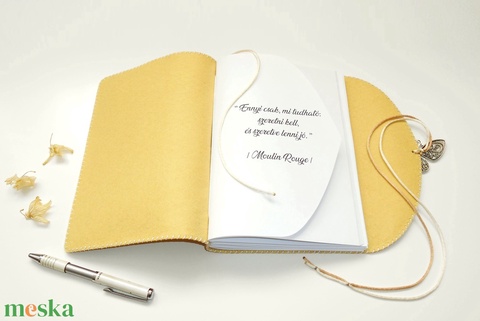 "Ennyi csak, mi tudható:
szeretni kell,
és szeretve lenni jó."
| Moulin Rouge |
meska